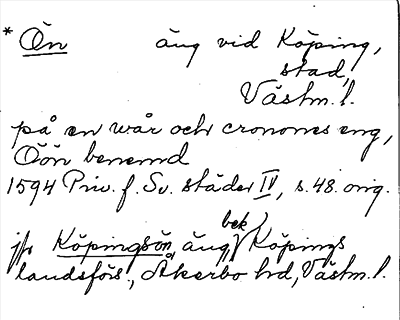 * Ön äng vid Köping,
stad,
Västm. l.
på en wår och cronones eng,
Öön benemd
1594 Priv. f. Sv. städer IV, s. 48. orig.
jfr Köpingsön, äng, bek Köpings
landsförs., Åkerbo hd, Västm. l.